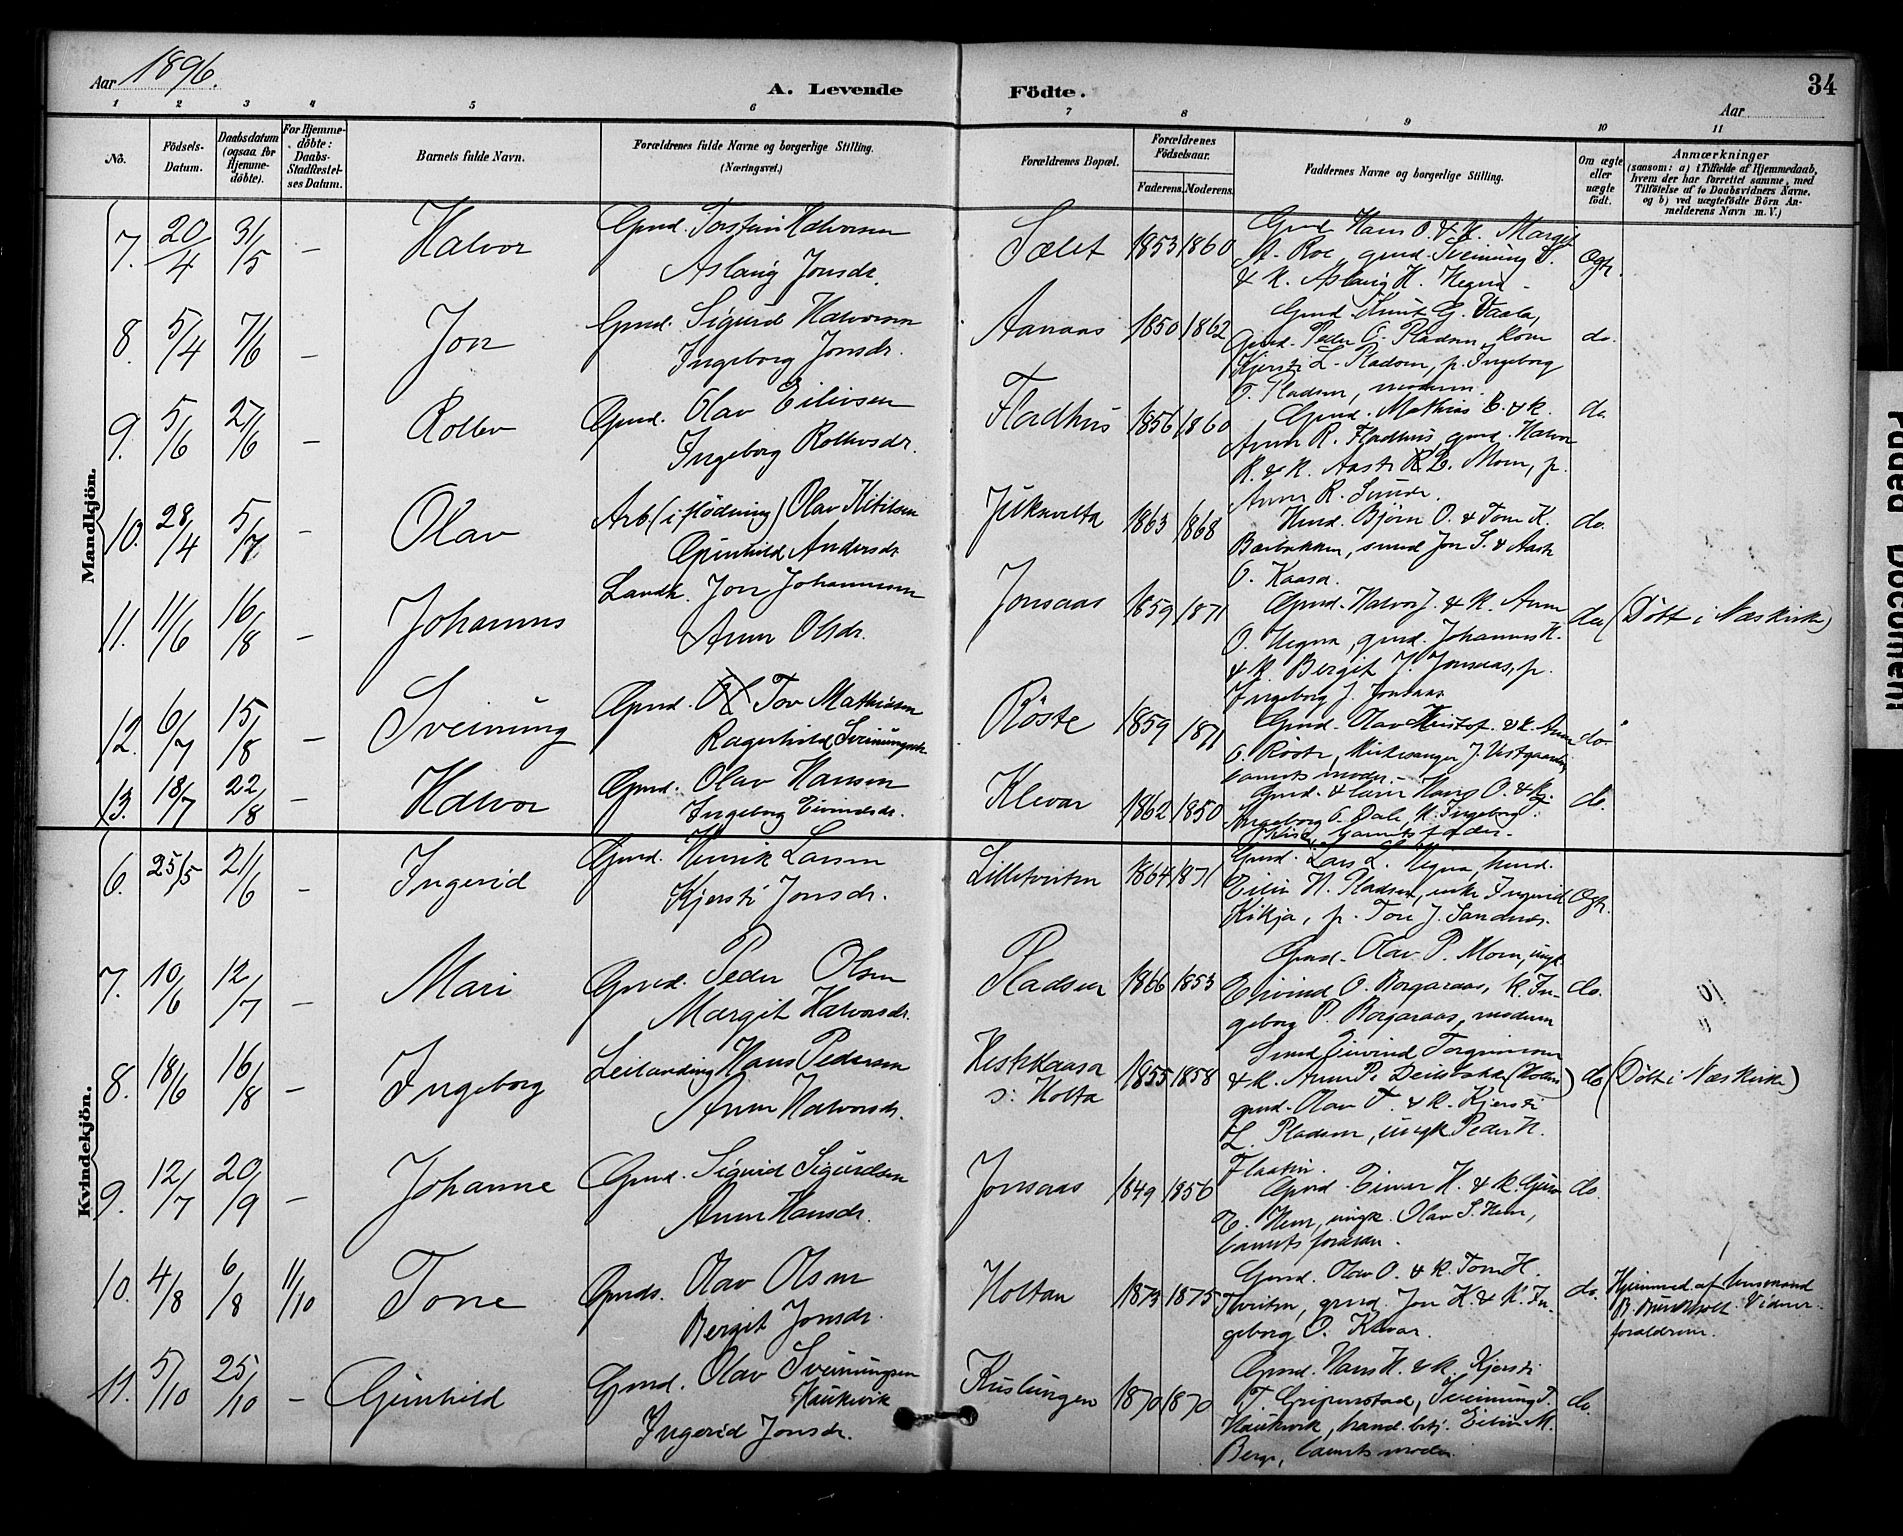 Aar 1896.
A. Levende Födte.
34
Aar
1 2 3 4 5 6 7 8 9 10 11
No. Födsels-Datum. Daabsdatum (ogsaa for Hjemme-döbte). For Hjemme-döbte: Daabs-Stadfæstel-ses Datum. Barnets fulde Navn. Forældrenes fulde Navne og borgerlige Stilling. (Næringsvei.) Forældrenes Bopæl. Forældrenes Födselsaar. Faderens. Moderens. Faddernes Navne og borgerlige Stilling. Om ægte eller uægte födt. Anmærkninger (saasom: a) i Tilfælde af Hjemmedaab, hvem der har forrettet samme, med Tilföielse af to Daabsvidners Navne, og b) ved uægtefödte Börn An-melderens Navn m. V.)
Mandkjön.
7. 20/4 31/5 – Halvor Gmd. Torstein Halvorsen Sælet 1853 1860 Gmd Hans O. & K. Margit
Aslaug Jonsdr. A. Roe, gmd. Sveinung S. Ægte.
& K. Aslaug H. Hegna
8. 5/4 7/6 – Jon Gmd. Sigurd Halvorsen Aanaas 1850 1862 Gmd Knut G. Vaala, do.
Ingeborg Jonsdr. Gmd. Peder O. Pladsen, kone
Kjersti L. Pladsen, p. Ingeborg
T. Pladsen, moderen.
9. 5/6 27/6 – Rollev Gmd. Olav Eilivsen Fladhus 1856 1860 Gmd. Mathias E. & K. do
Ingeborg Rollevsdr. Anne R. Fladhus, gmd. Halvor
R. & K. Aaste E. Moen, p.
Anne R. Sunde.
10. 28/4 5/7 – Olav Arb. (i flödning) Olav Kitilsen Juksvelta 1863 1868 Hmd. Björn O. & Tone K. do.
Gunhild Andersdr. Barbakken, smed Jon S. & Aaste
O. Kaasa.
11. 11/6 16/8 – Johannes Landh. Jon Johannessen Jonsaas 1859 1871 Gmd. Halvor J. & K. Anne do (Döbt i Næs kirke)
Anne Olsdr. O. Hegna, gmd. Johannes K.
& K. Bergit J. Jonsaas, p.
Ingeborg J. Jonsaas
12. 6/7 15/8 – Sveinung Gmd. Tov Mathissen Röste 1859 1871 Gmd. Olav Kristof. & K. Anne do
Ragnhild Sveinungsdr. O. Röste, Kirkesanger J. Vestgaarden,
barnets moder.
13. 18/7 22/8 – Halvor Gmd. Olav Hansen Klevar 1862 1850 Gmd. & Hans O. & K. do.
Ingeborg Eivindsdr. Ingeborg O. Dale, K. Ingeborg
barnets fader.
Kvindekjön.
6. 25/5 21/6 – Ingerid Gmd. Henrik Larsen Lilletveiten 1864 1871 Gmd. Lars L. Hegna, hmd.
Kjersti Jonsdr. Eiliv H. Pladsen, enke Ingerid Ægte.
Kikja, p. Tone J. Sandnes.
7. 10/6 12/7 – Mari Gmd. Peder Olsen Pladsen 1866 1853 Gmd. Olav P. Moen, ungk
Margit Halvorsdr. Eivind O. Borgaraas, K. In- do.
geborg P. Borgaraas, moderen
8. 18/6 16/8 – Ingeborg Leilænding Hans Pedersen Heskekaasa 1855 1858 Smed Eivind Torgrimsen
Anne Halvorsdr. s: Holta & K. Anne P. (Holta) do (Döbt i Næs kirke)
gmd. Olav T. & K. Kjersti
L. Pladsen, ungk Peder H.
Flaatin.
9. 12/7 20/9 – Johanne Gmd. Sigurd Sigurdsen Jonsaas 1849 1856 Gmd. Einar H. & K. Guro do.
Anne Hansdr. E. Hem, ungk. Olav S. Hem,
barnets forældre.
10. 4/8 6/8 11/10 Tone Gmds. Olav Olsen Holtan 1873 1875 Gmd. Olav O. & K. Tone H. do. Hjemmed. af husmand
Bergit Jonsdr. Tveiten, gmd Jon K. & K. In- B. Munkholt. Vidner:
geborg O. Klevar. forældrene.
11. 5/10 25/10 – Gunhild Gmd. Olav Sveinungsen Kuslungen 1870 1870 Gmd. Hans H. & K. Kjersti
Haukvik T. Gripenstad, Sveinung T. do.
Ingerid Jonsdr. Haukvik, hand. betj. Eiliv M.
Berge, barnets moder.